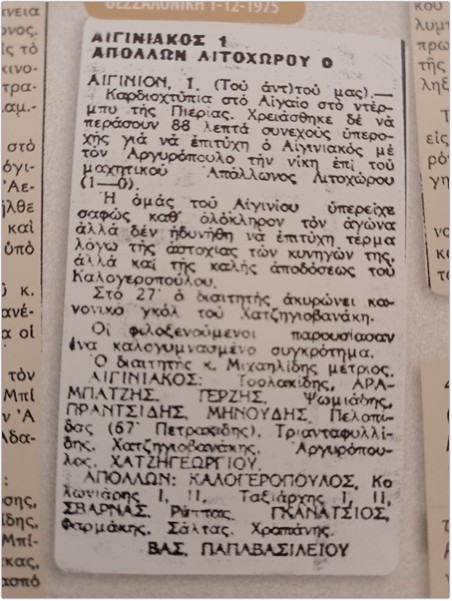 ΘΕΣΣΑΛΟΝΙΚΗ 1-12-1975
ΑΙΓΙΝΙΑΚΟΣ 1
ΑΠΟΛΛΩΝ ΛΙΤΟΧΩΡΟΥ 0
ΑΙΓΙΝΙΟΝ, 1. (Τοῦ ἀντ)τοῦ μας).—
Καρδιοχτύπια στό Αἰγαίο στό ντέρ-
μπυ τής Πιερίας. Χρειάσθηκε δέ νά
περάσουν 88 λεπτά συνεχούς ὑπερο-
χῆς γιά νά ἐπιτύχη ὁ Αἰγινιακός μέ
τόν Ἀργυρόπουλο τήν νίκη ἐπί τοῦ
μαχητικοῦ Ἀπόλλωνος Λιτοχώρου
(1—0).
Ἡ ὁμάς τοῦ Αἰγινίου ὑπερεῖχε
σαφώς καθ' ὁλόκληρον τόν ἀγώνα
ἀλλά δέν ἠδυνήθη νά ἐπιτύχη τέρμα
λόγω τής ἀστοχίας τών κυνηγών της,
ἀλλά καί τής καλής ἀποδόσεως τοῦ
Καλογεροπούλου.
Στό 27' ὁ διαιτητής ἀκυρώνει κα-
νονικο γκόλ τοῦ Χατζηγιοβανάκη.
Οἱ φιλοξενούμενοι παρουσίασαν
ἕνα καλογυμνασμένο συγκρότημα.
Ὁ διαιτητής κ. Μιχαηλίδης μέτριος.
ΑΙΓΙΝΙΑΚΟΣ: Τσολακίδης, ΑΡΑ-
ΜΠΑΤΖΗΣ, ΓΕΡΖΗΣ, Ψωμιάδης,
ΠΡΑΝΤΣΙΔΗΣ, ΜΗΝΟΥΔΗΣ, Πελοπί-
δας (67' Πετρακίδης), Τριανταφυλλί-
δης, Χατζηγιοβανάκης, Ἀργυρόπου-
λος, ΧΑΤΖΗΓΕΩΡΓΙΟΥ.
ΑΠΟΛΛΩΝ: ΚΑΛΟΓΕΡΟΠΟΥΛΟΣ, Κο
λωνιάρης Ι, ΙΙ, Ταξιάρχης Ι, ΙΙ,
ΣΒΑΡΝΑΣ, Ρύπτας, ΓΚΑΝΑΤΣΙΟΣ,
Φαρμάκης, Σάλτας, Χραπάνης.
ΒΑΣ, ΠΑΠΑΒΑΣΙΛΕΙΟΥ